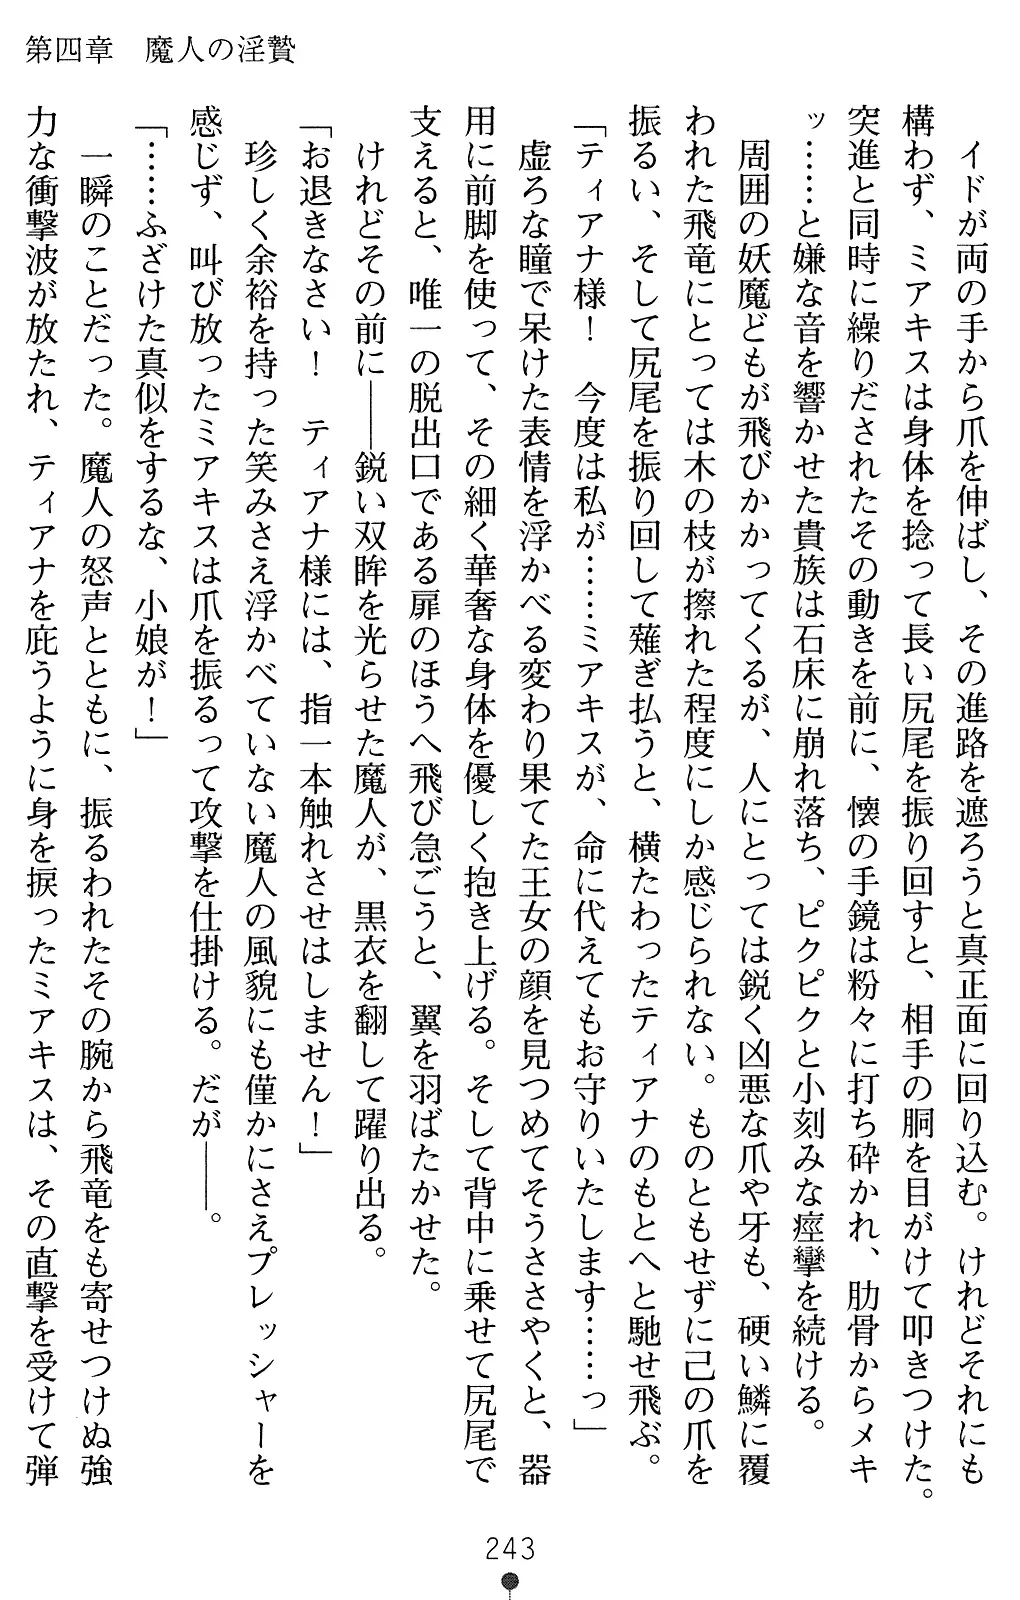 第四章　魔人の淫贄
　イドが両の手から爪を伸ばし、その進路を遮ろうと真正面に回り込む。けれどそれにも
構わず、ミアキスは身体を捻って長い尻尾を振り回すと、相手の胴を目がけて叩きつけた。
突進と同時に繰りだされたその動きを前に、懐の手鏡は粉々に打ち砕かれ、肋骨からメキ
ッ……と嫌な音を響かせた貴族は石床に崩れ落ち、ピクピクと小刻みな痙攣を続ける。
　周囲の妖魔どもが飛びかかってくるが、人にとっては鋭く凶悪な爪や牙も、硬い鱗に覆
われた飛竜にとっては木の枝が擦れた程度にしか感じられない。ものともせずに己の爪を
振るい、そして尻尾を振り回して薙ぎ払うと、横たわったティアナのもとへと馳せ飛ぶ。
「ティアナ様！　今度は私が……ミアキスが、命に代えてもお守りいたします……っ」
　虚ろな瞳で呆けた表情を浮かべる変わり果てた王女の顔を見つめてそうささやくと、器
用に前脚を使って、その細く華奢な身体を優しく抱き上げる。そして背中に乗せて尻尾で
支えると、唯一の脱出口である扉のほうへ飛び急ごうと、翼を羽ばたかせた。
　けれどその前に――鋭い双眸を光らせた魔人が、黒衣を翻して躍り出る。
「お退きなさい！　ティアナ様には、指一本触れさせはしません！」
　珍しく余裕を持った笑みさえ浮かべていない魔人の風貌にも僅かにさえプレッシャーを
感じず、叫び放ったミアキスは爪を振るって攻撃を仕掛ける。だが――。
「……ふざけた真似をするな、小娘が！」
　一瞬のことだった。魔人の怒声とともに、振るわれたその腕から飛竜をも寄せつけぬ強
力な衝撃波が放たれ、ティアナを庇うように身を捩ったミアキスは、その直撃を受けて弾
243